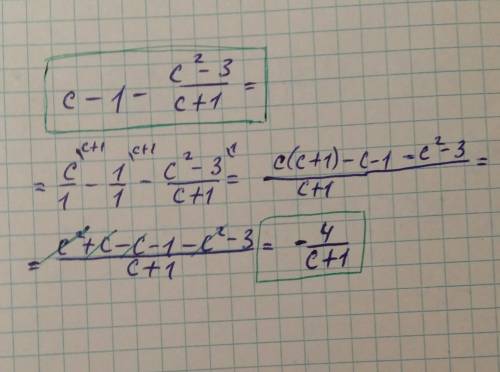 c - 1 - (c² - 3)/(c+1) =
= c/1 ^\c+1 - 1/1 ^\c+1 - (c² - 3)/(c+1) ^\1 = (c(c+1) - c - 1 - c² - 3)/(c+1) =
= (c² + c - c - 1 - c² - 3)/(c+1) = - 4/(c+1)